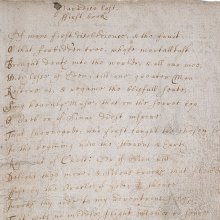 Paradise Lost.
First book
Of mans first disobedience, & the fruit
Of that forbidden tree, whose mortall tast
Brought death into the world, & all our woe,
With losse of Eden, till one greater Man
Restore us, & regaine the blissfull seate,
Sing heavenly Muse, that on the secret top
Of Oreb, or of Sinai didst inspire
That shepheard, who first taught the chosen
In the beginning how the heavens & Earth
Chaos: Or if Sion hill
Delight thee more, & Siloa's brooke that
the Oracle of God; I thence
thy aide to my
That with no middle flight intends to soar